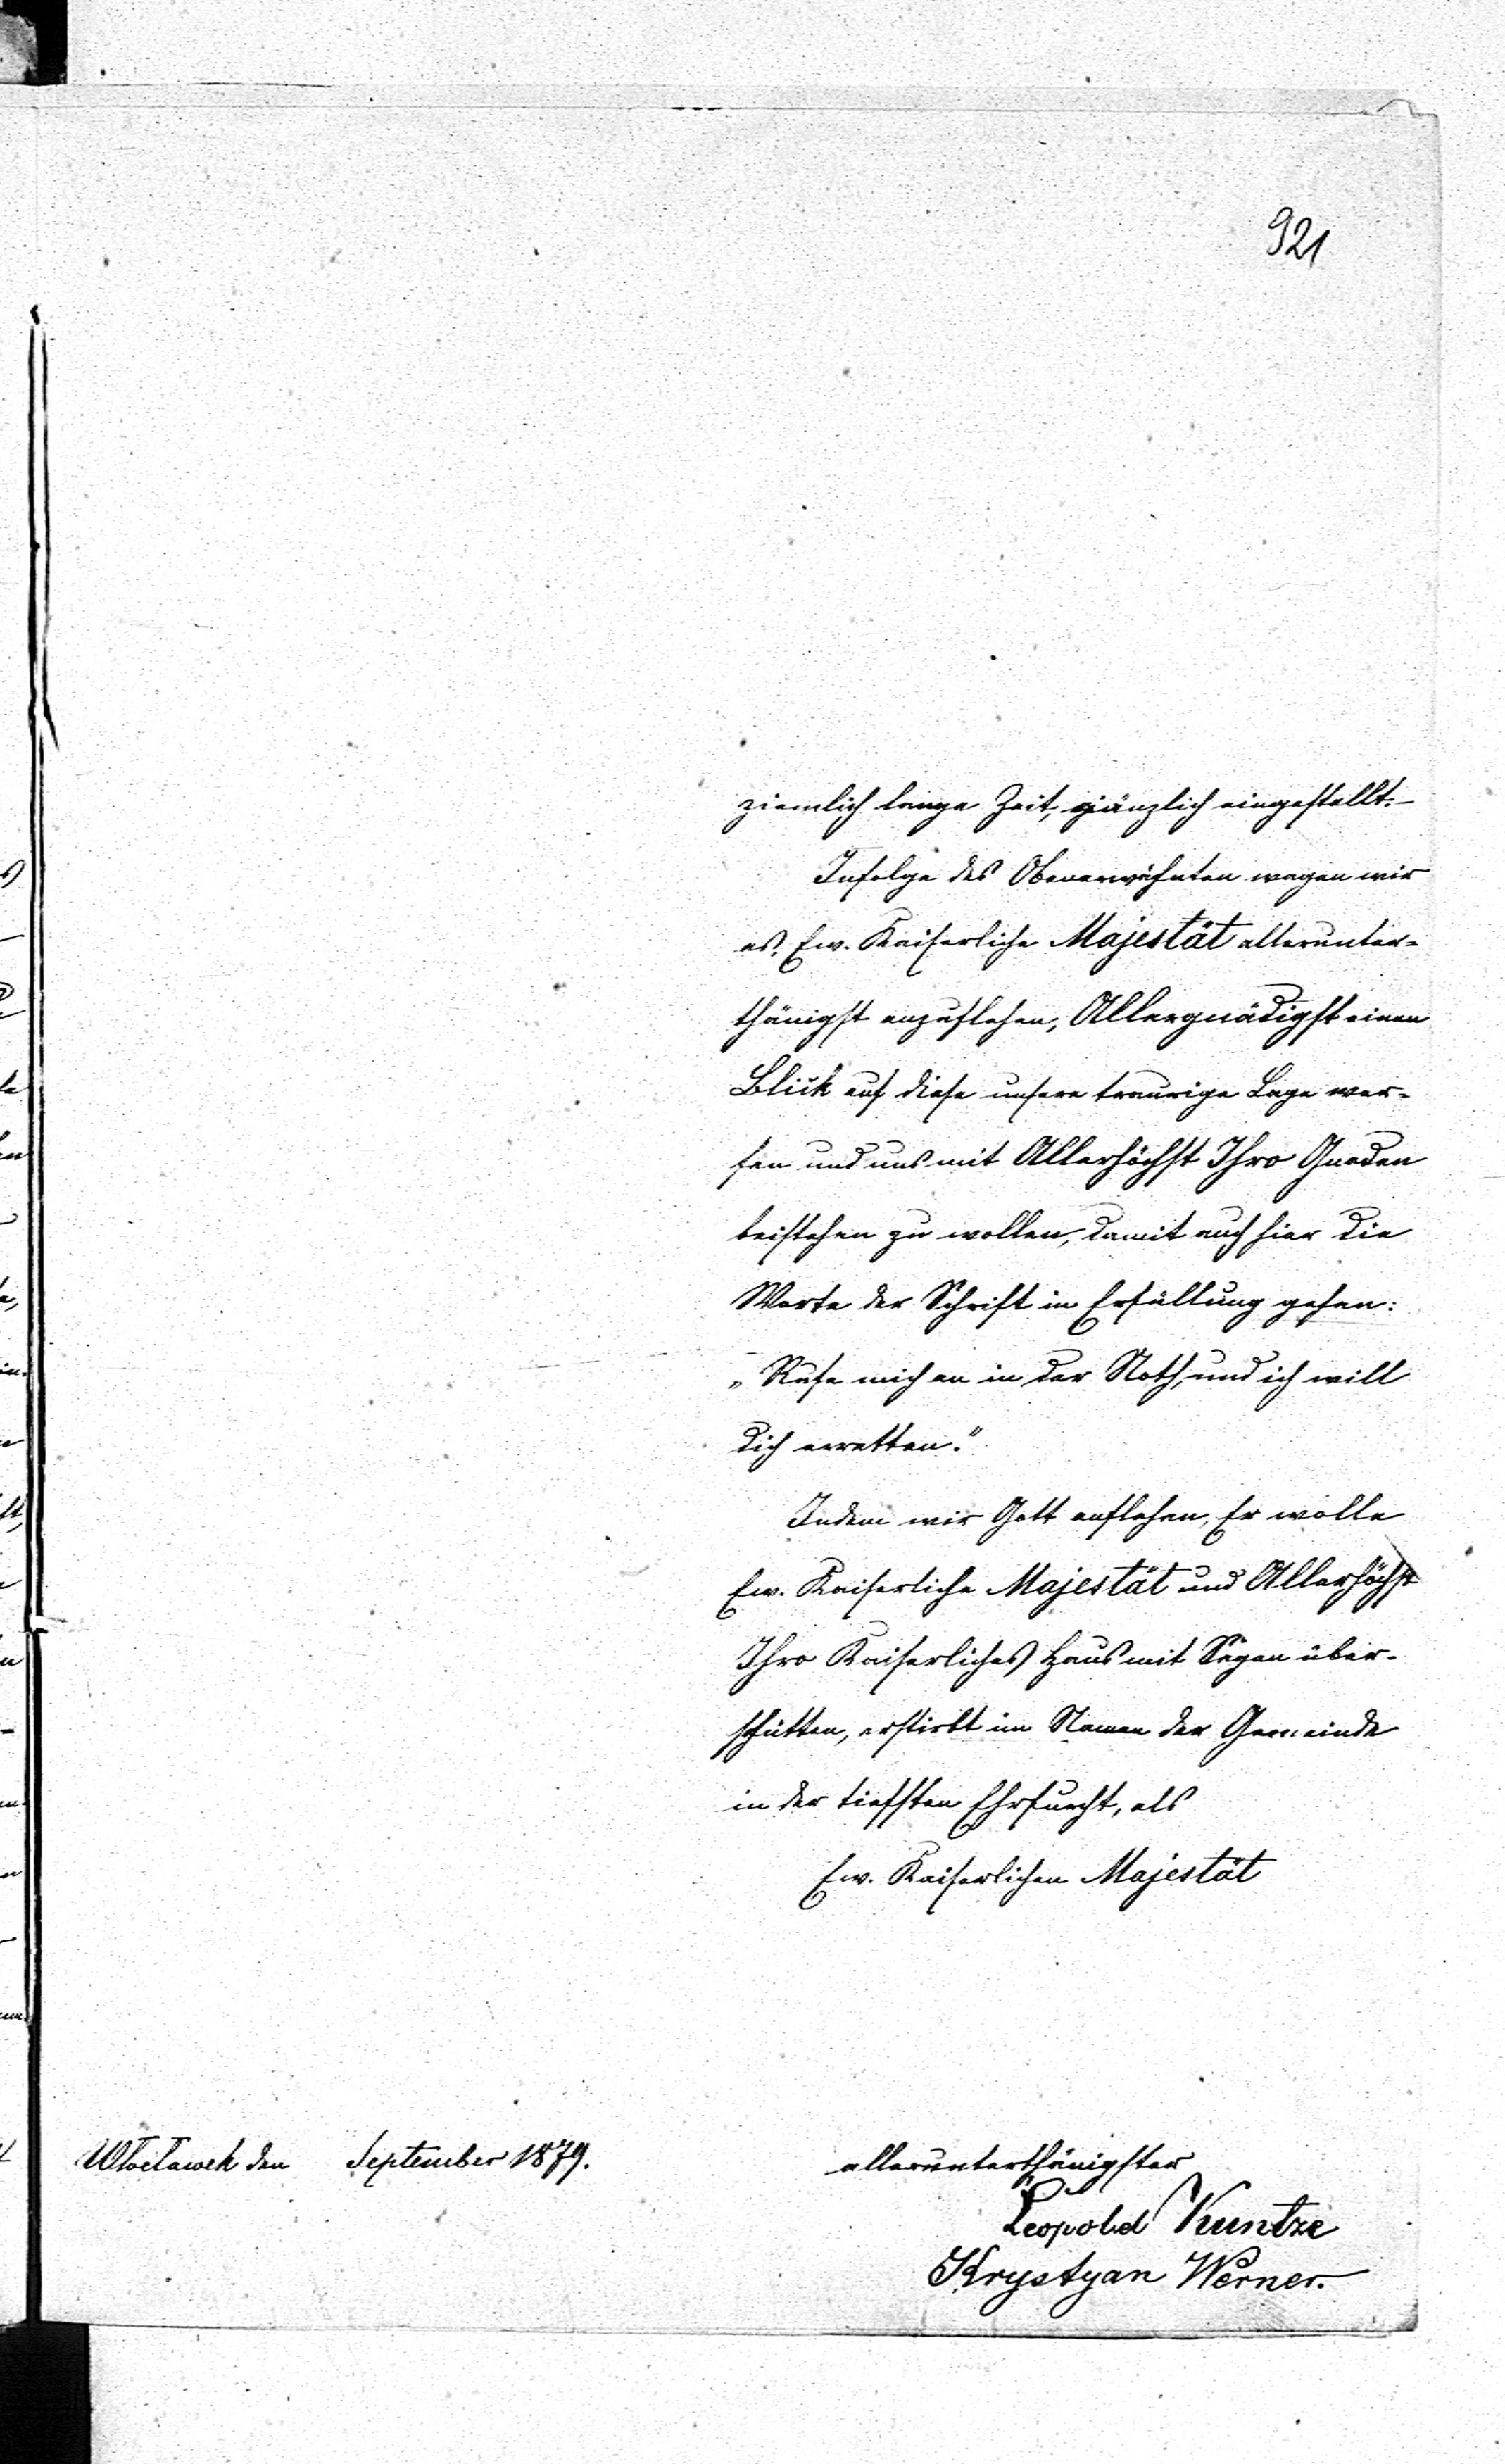 921
ziemlich lange Zeit, gänzlich eingestellt.–
Infolge des Obenerwähnten wagen wir
es, Ew. Kaiserliche Majestät allerunter-
thänigst anzuflehen, Allergnädigst einen
Blick auf diese unsere traurige Lage wer-
fen und uns mit Allerhöchst Ihro Gnaden
beistehen zu wollen, damit auch hier die
Worte der Schrift in Erfüllung gehen:
„Rufe mich an in der Noth, und ich will
dich erretten."
Indem wir Gott anflehen, Er wolle
Ew. Kaiserliche Majestät und Allerhöchst
Ihro Kaiserliches Haus mit Segen über-
schütten, erstirbt im Namen der Gemeinde
in der tiefsten Ehrfurcht, als
Ew. Kaiserlichen Majestät
Włocławek den September 1879.
allerunterthänigster
Leopold Kuntze
Krystyan Werner.